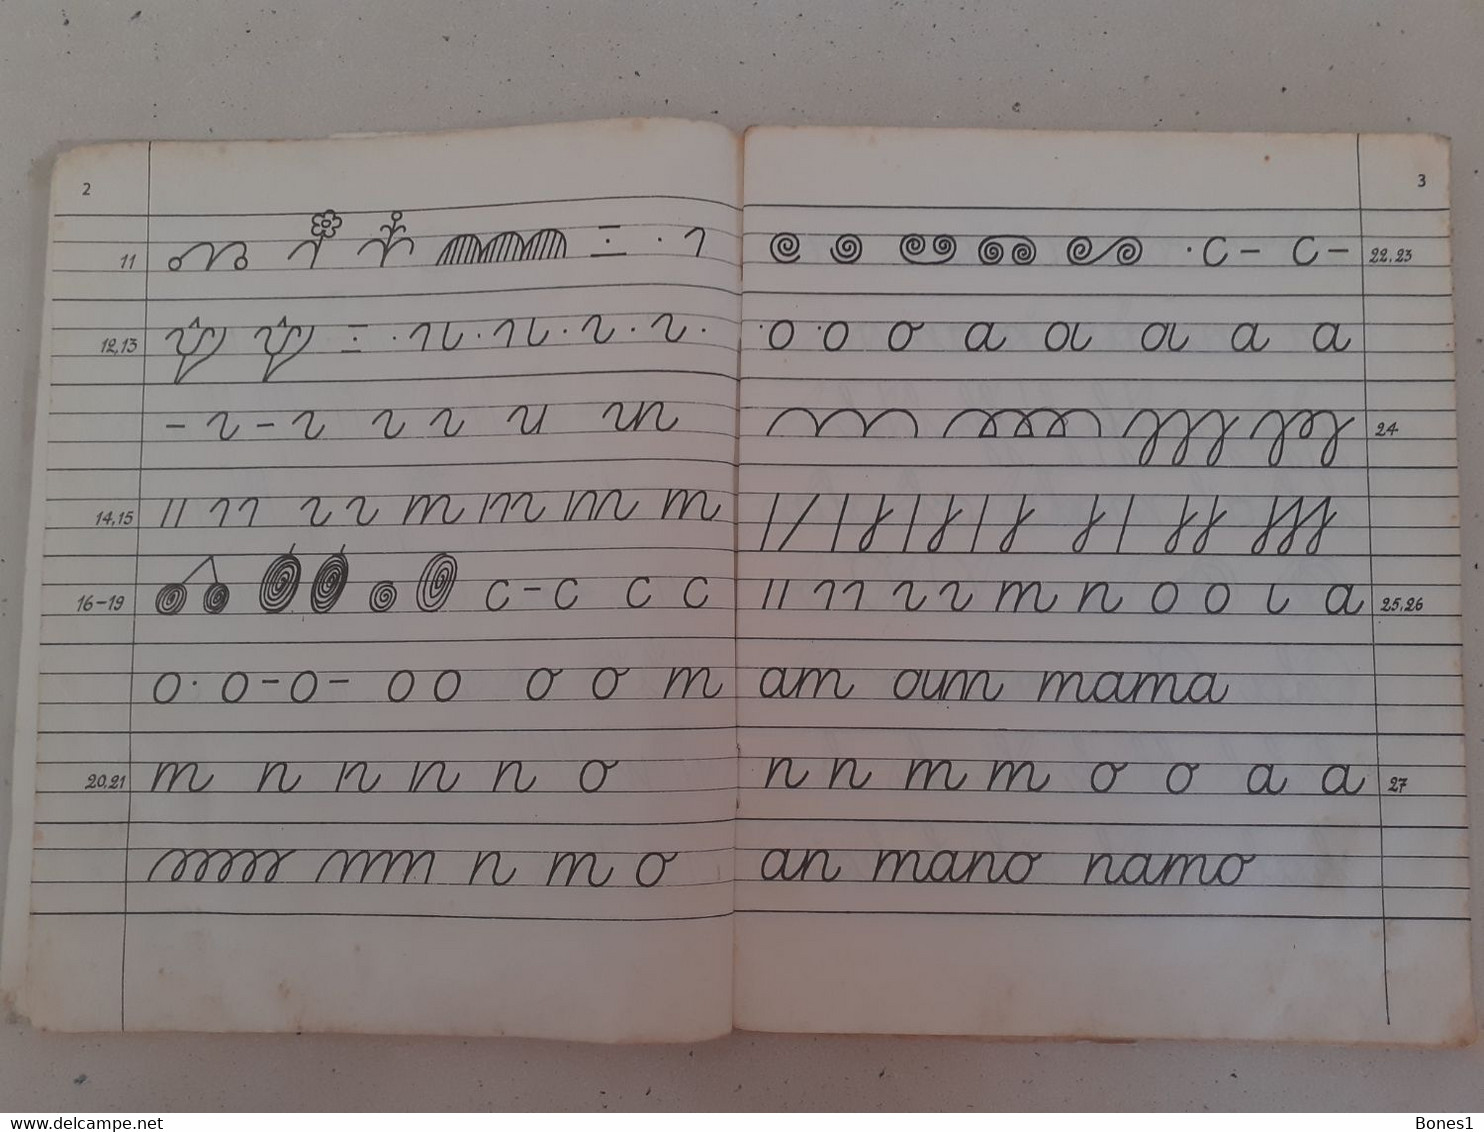 2
11
12,13
14,15
16-19 c-c c c
o·o-o- o o o o m
20,21 m n n n n o
n m o
3
·c- c- 22,23
·o·o o a a a a a
24
m n o o ι a 25,26
am oum mama
n n m m o o a a 27
an mano namo
www.delcampe.net
Bones1